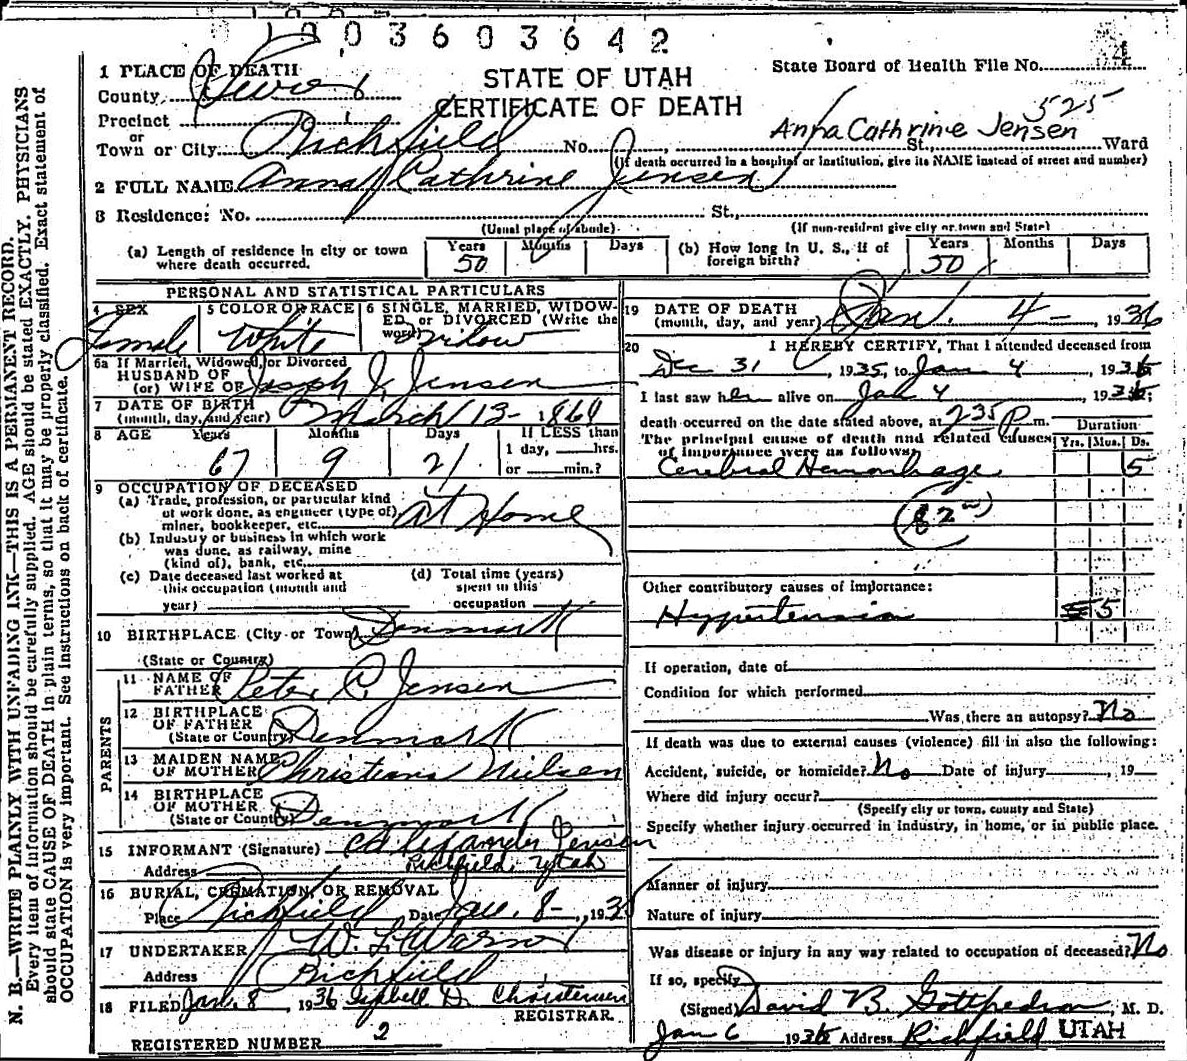 1003603642
STATE OF UTAH
CERTIFICATE OF DEATH
State Board of Health File No.
525
1 PLACE OF DEATH
County Sevier
Precinct
or
Town or City Richfield No. St., Ward
Anna Cathrine Jensen
(If death occurred in a hospital or institution, give its NAME instead of street and number)
2 FULL NAME Anna Cathrine Jensen
3 Residence: No. St.,
(Usual place of abode) (If non-resident give city or town and State)
(a) Length of residence in city or town where death occurred. Years 50 Months Days (b) How long in U. S., if of foreign birth? Years 50 Months Days
PERSONAL AND STATISTICAL PARTICULARS
4 SEX Female 5 COLOR OR RACE White 6 SINGLE, MARRIED, WIDOWED, or DIVORCED (Write the word) Widow
6a If Married, Widowed, or Divorced
HUSBAND OF
(or) WIFE OF Joseph J. Jensen
7 DATE OF BIRTH
(month, day, and year) March 13- 1868
8 AGE Years 67 Months 9 Days 21 If LESS than 1 day, hrs. or min.?
9 OCCUPATION OF DECEASED
(a) Trade, profession, or particular kind of work done, as engineer (type of) miner, bookkeeper, etc. At Home
(b) Industry or business in which work was done, as railway, mine (kind of), bank, etc.
(c) Date deceased last worked at this occupation (month and year)
(d) Total time (years) spent in this occupation
10 BIRTHPLACE (City or Town) Denmark
(State or Country)
PARENTS
11 NAME OF FATHER Peter C. Jensen
12 BIRTHPLACE OF FATHER
(State or Country) Denmark
13 MAIDEN NAME OF MOTHER Christiana Nielsen
14 BIRTHPLACE OF MOTHER
(State or Country) Denmark
15 INFORMANT (Signature) Jensen
Address Richfield, Utah
16 BURIAL, CREMATION, OR REMOVAL
Place Richfield Date Jan. 8-, 193
17 UNDERTAKER W.
Address Richfield
18 FILED Jan. 8, 1936 D. Christensen
REGISTRAR.
REGISTERED NUMBER 2
19 DATE OF DEATH
(month, day, and year) Jan. 4-, 1936
20 I HEREBY CERTIFY, That I attended deceased from
Dec 31, 1935, to Jan 4, 1936
I last saw her alive on Jan 4, 1936;
death occurred on the date stated above, at 235 P. m.
The principal cause of death and related causes of importance were as follows: Duration
Yrs. Mos. Ds.
Cerebral Hemorrhage 5
Other contributory causes of importance:
Hypertension 5
If operation, date of
Condition for which performed
Was there an autopsy? No
If death was due to external causes (violence) fill in also the following:
Accident, suicide, or homicide? No Date of injury, 19
Where did injury occur?
(Specify city or town, county and State)
Specify whether injury occurred in industry, in home, or in public place.
Manner of injury
Nature of injury
Was disease or injury in any way related to occupation of deceased? No
If so, specify
(Signed) David B. Gottfredson, M. D.
Jan 6 1936 Address Richfield UTAH
N. B.—WRITE PLAINLY WITH UNFADING INK—THIS IS A PERMANENT RECORD.
Every item of information should be carefully supplied. AGE should be stated EXACTLY. PHYSICIANS
should state CAUSE OF DEATH in plain terms, so that it may be properly classified. Exact statement of
OCCUPATION is very important. See instructions on back of certificate.